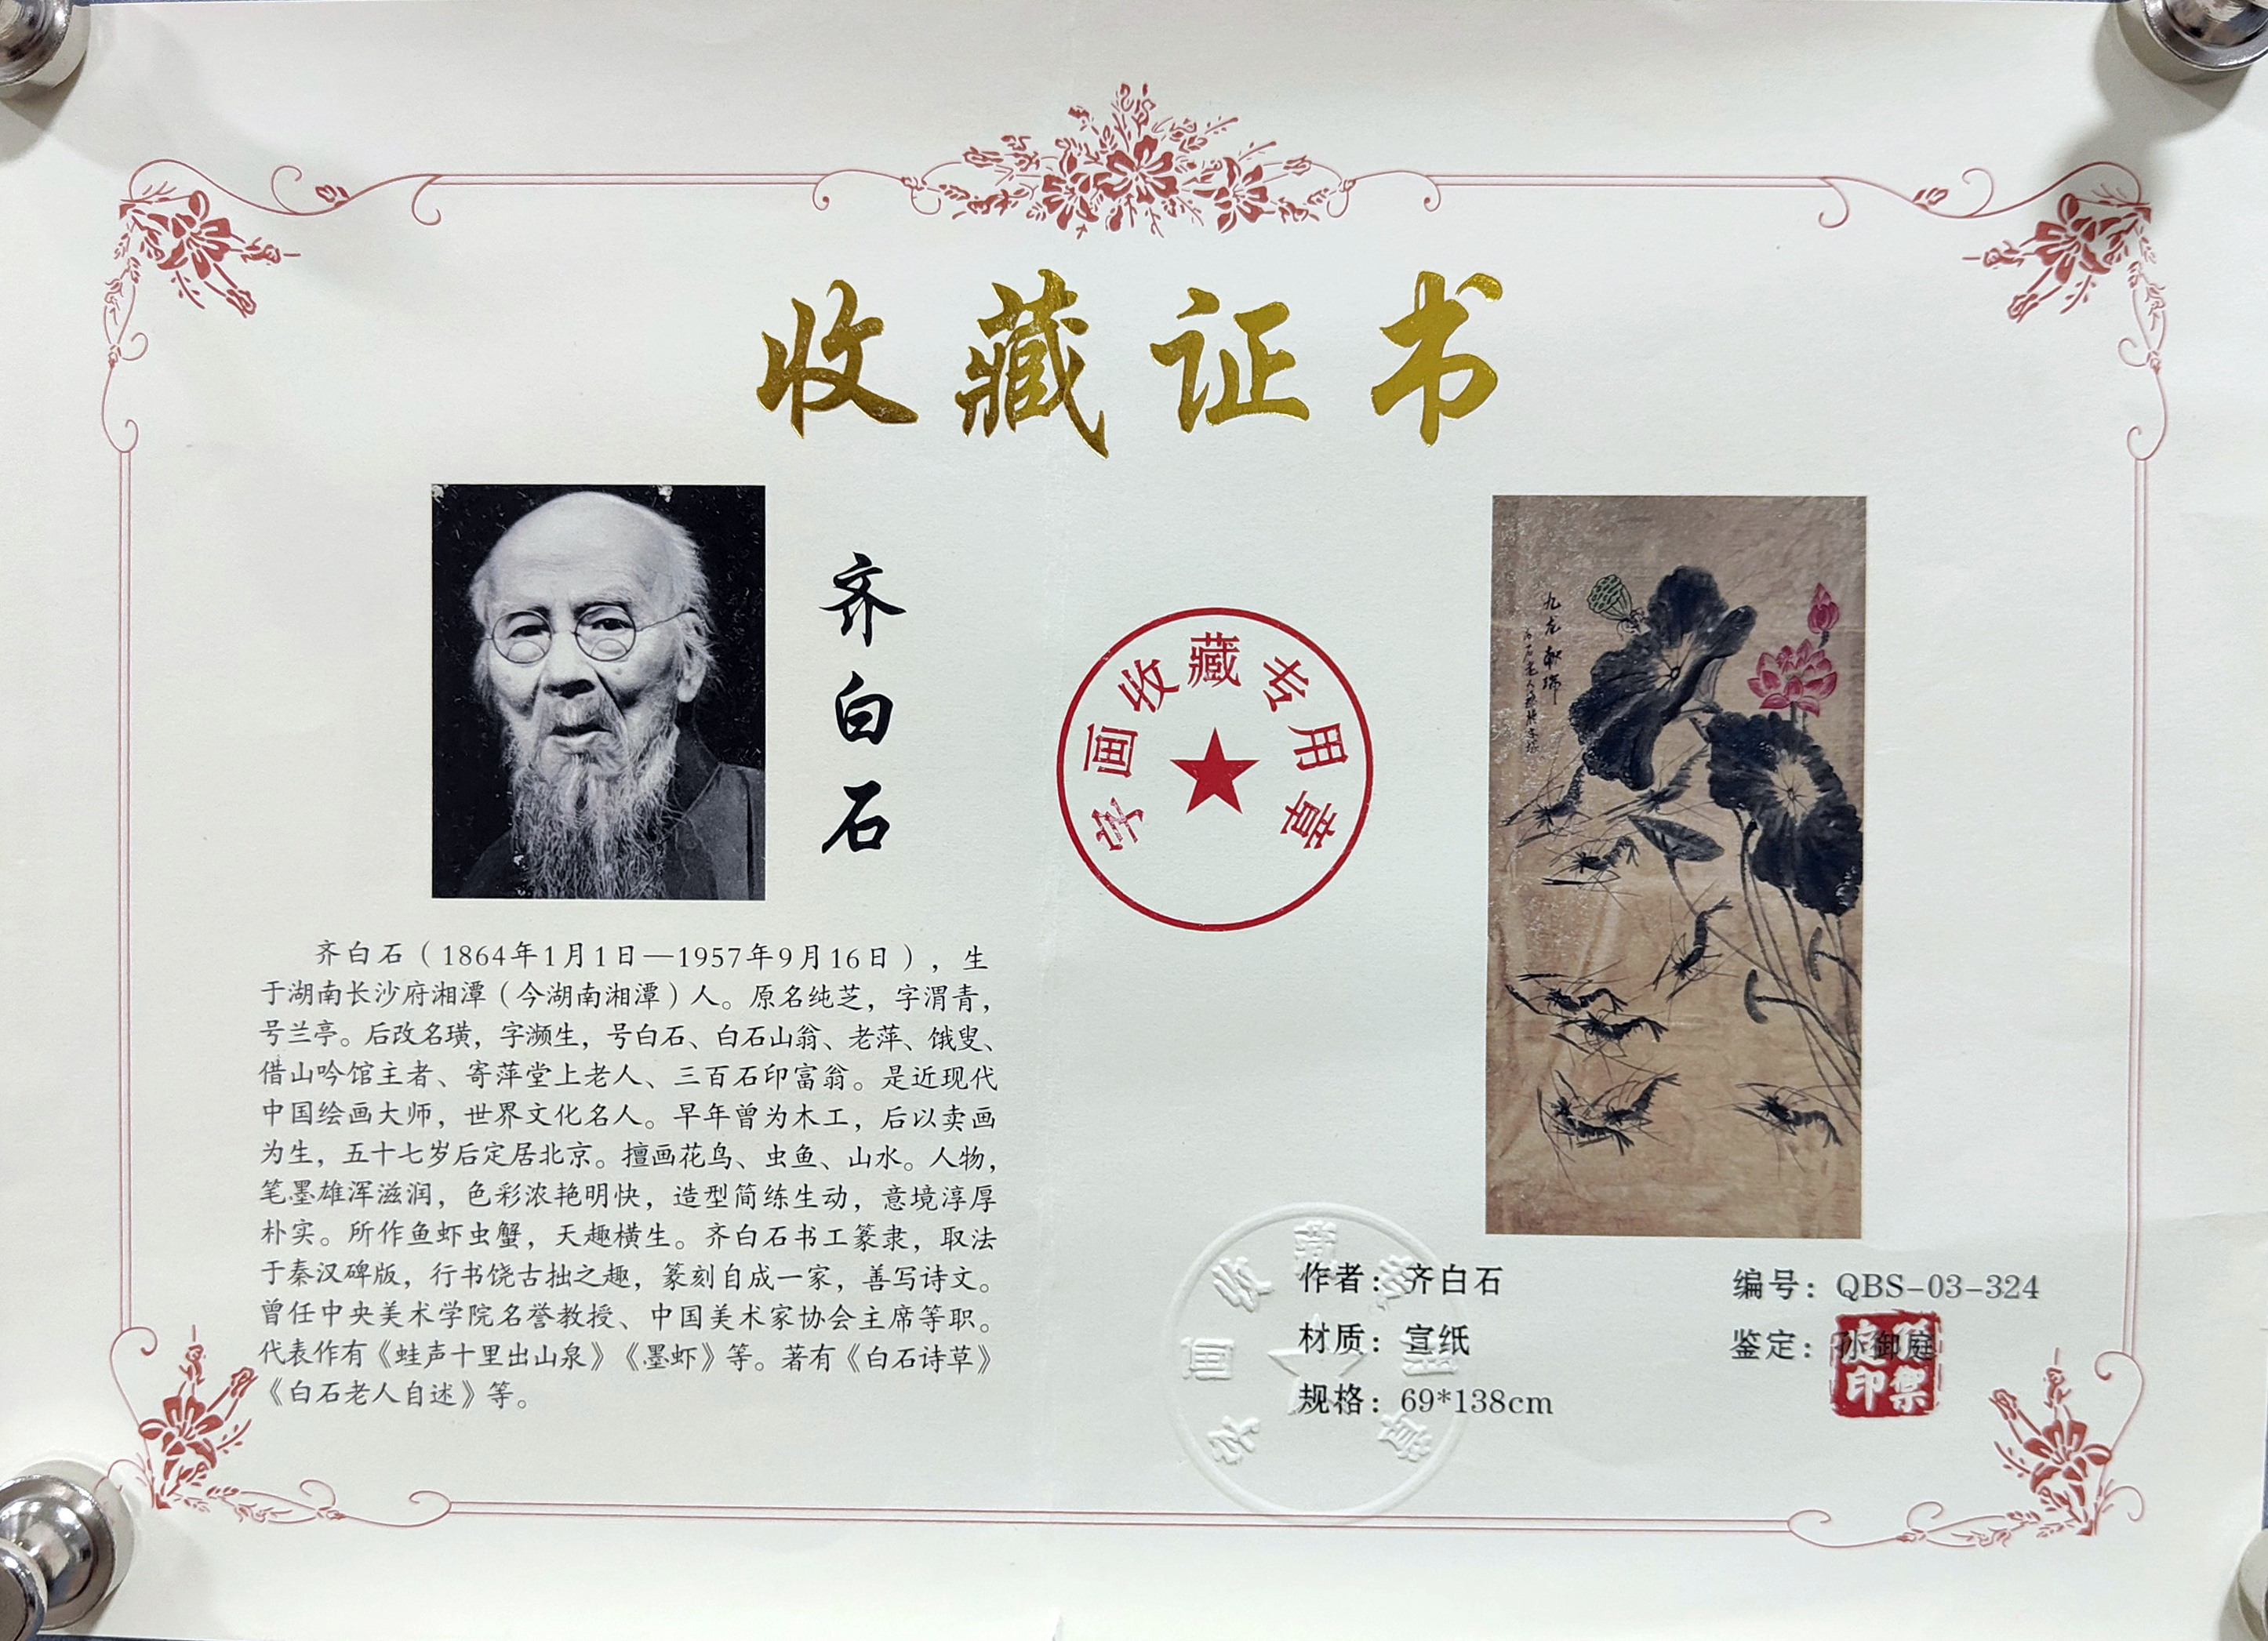 收藏证书
齐白石
字画收藏专用章
九龙献瑞
齐白石（1864年1月1日—1957年9月16日），生
于湖南长沙府湘潭（今湖南湘潭）人。原名纯芝，字渭青，
号兰亭。后改名璜，字濒生，号白石、白石山翁、老萍、饿叟、
借山吟馆主者、寄萍堂上老人、三百石印富翁。是近现代
中国绘画大师，世界文化名人。早年曾为木工，后以卖画
为生，五十七岁后定居北京。擅画花鸟、虫鱼、山水。人物，
笔墨雄浑滋润，色彩浓艳明快，造型简练生动，意境淳厚
朴实。所作鱼虾虫蟹，天趣横生。齐白石书工篆隶，取法
于秦汉碑版，行书饶古拙之趣，篆刻自成一家，善写诗文。
曾任中央美术学院名誉教授、中国美术家协会主席等职。
代表作有《蛙声十里出山泉》《墨虾》等。著有《白石诗草》
《白石老人自述》等。
作者：齐白石
材质：宣纸
规格：69*138cm
编号：QBS-03-324
鉴定：孙御庭